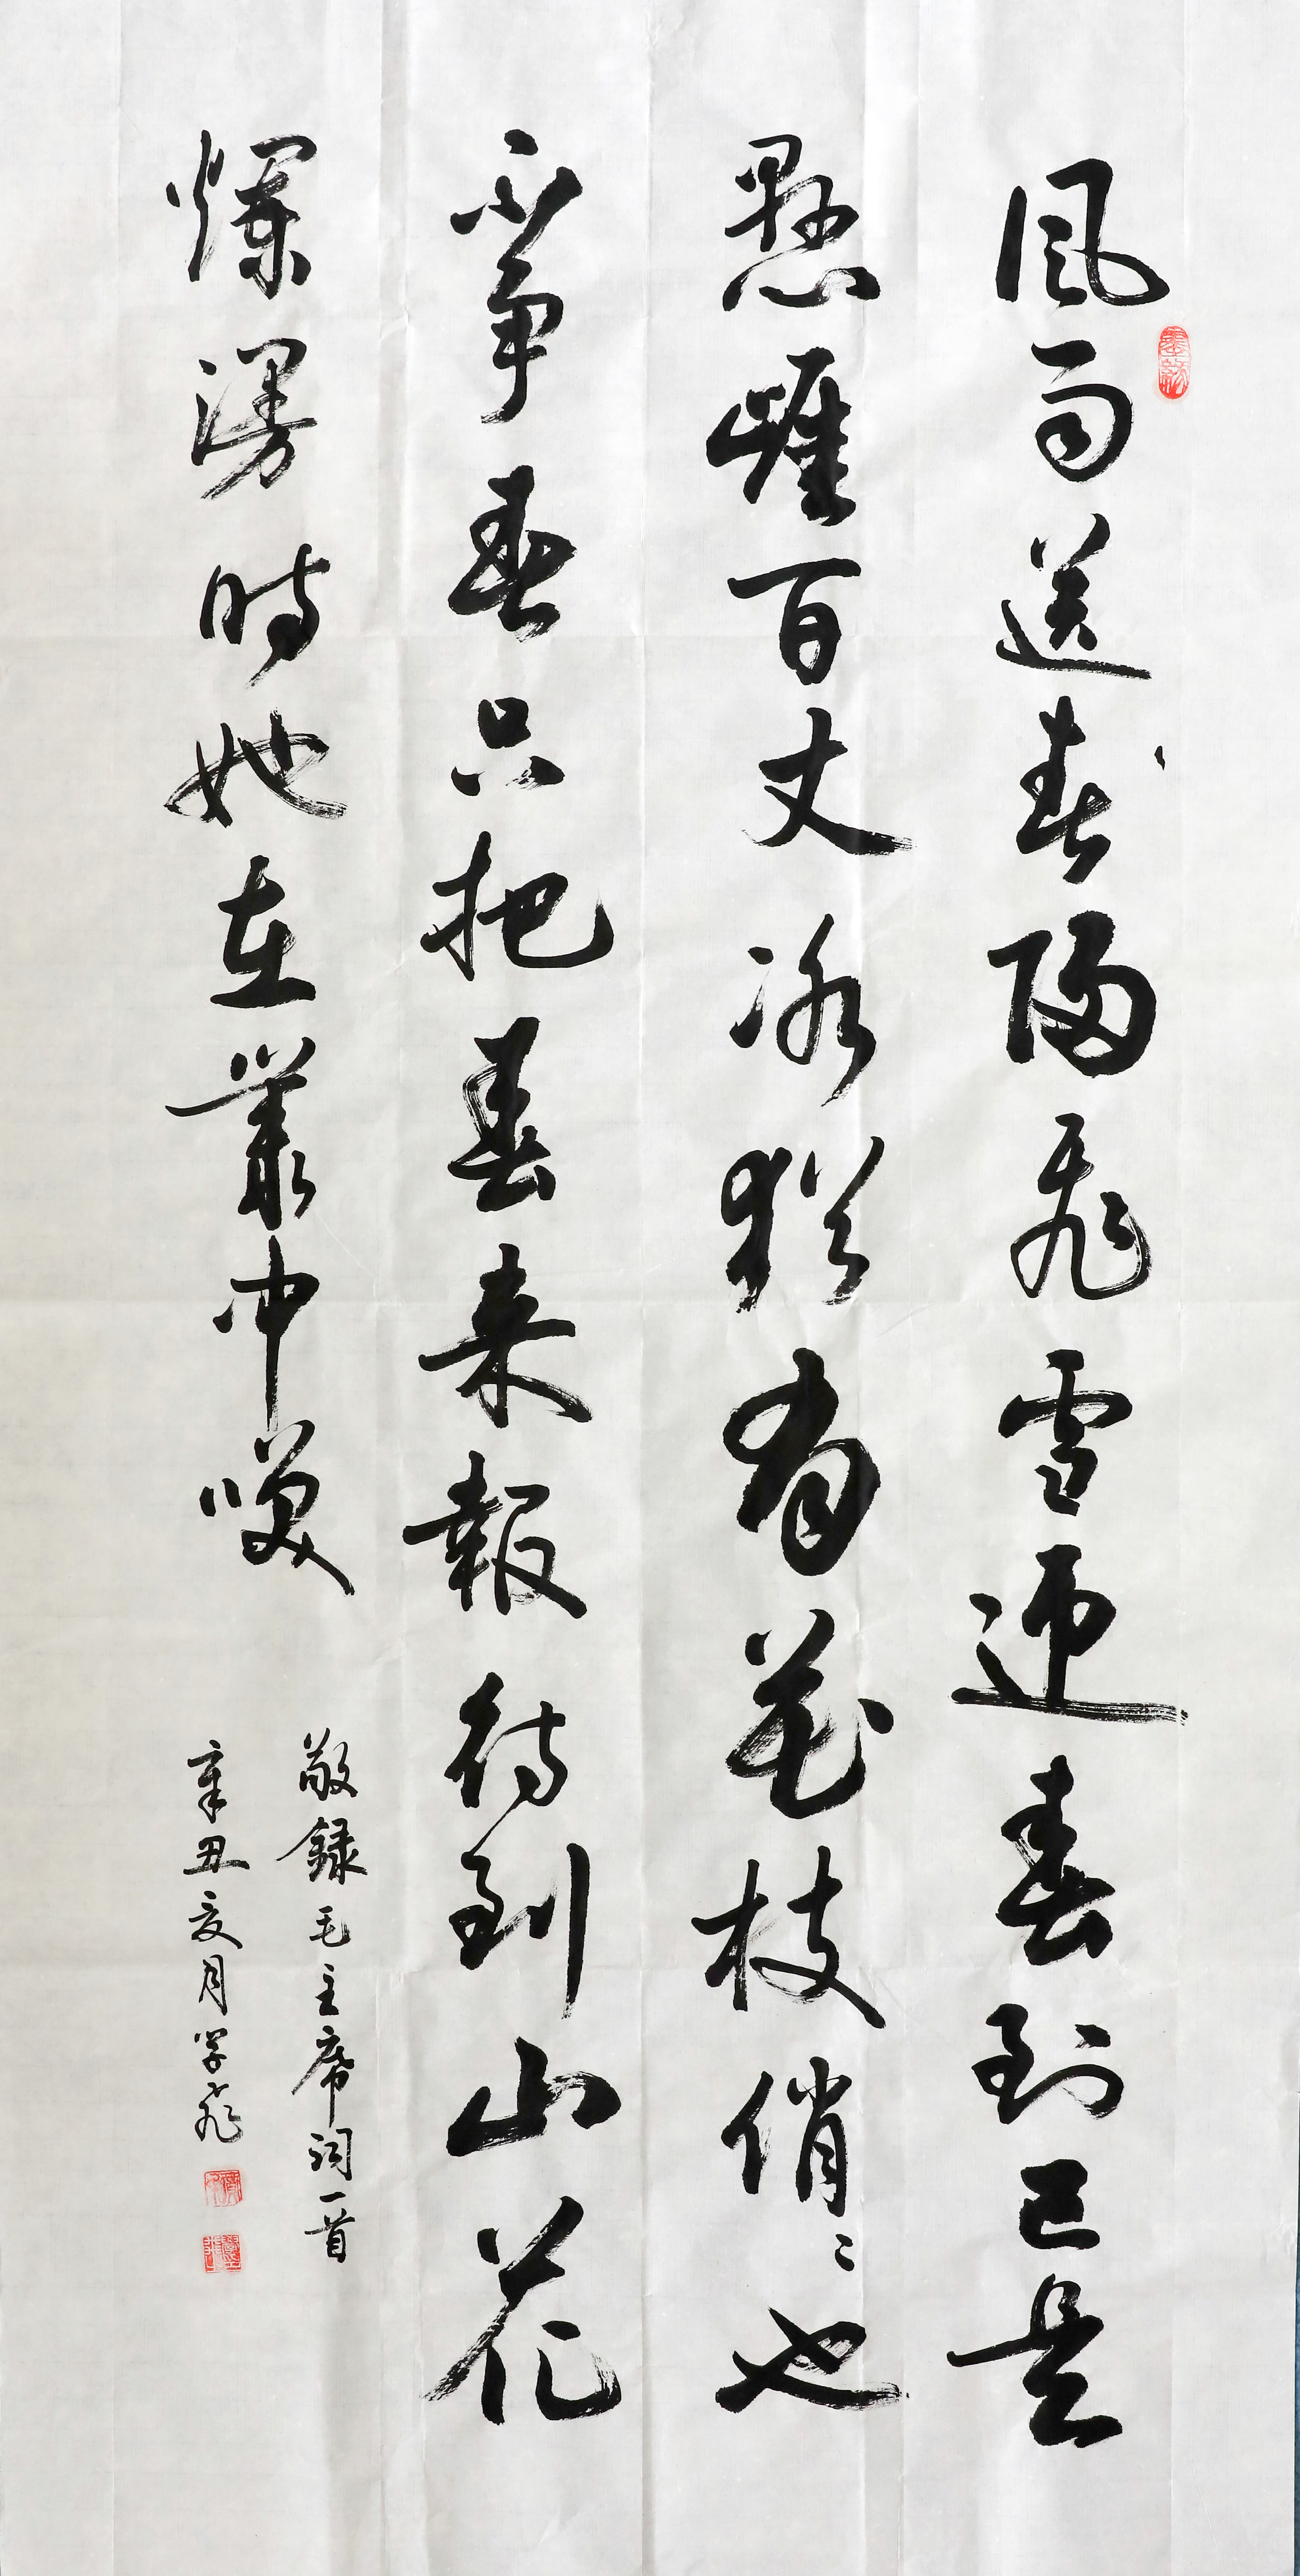 風雨送春歸飛雪迎春到已是
懸崖百丈冰猶有花枝俏〻也
不爭春只把春来報待到山花
爛漫時她在叢中咲
敬録毛主席詞一首
辛丑夏月学飛